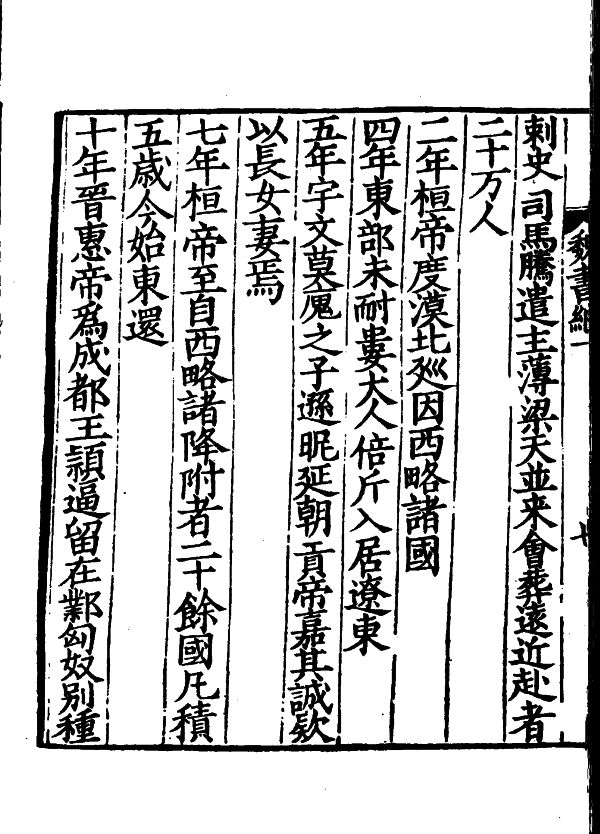 魏書紀一
刺史司馬騰遣主薄梁天並来會葬遠近赴者
二十万人
二年桓帝度漠北廵因西略諸國
四年東部未耐婁大人倍斤入居遼東
五年宇文莫廆之子遜昵延朝貢帝嘉其誠欵
以長女妻焉
七年桓帝至自西略諸降附者二十餘國凡積
五歳今始東還
十年晉惠帝爲成都王穎逼留在鄴匈奴别種